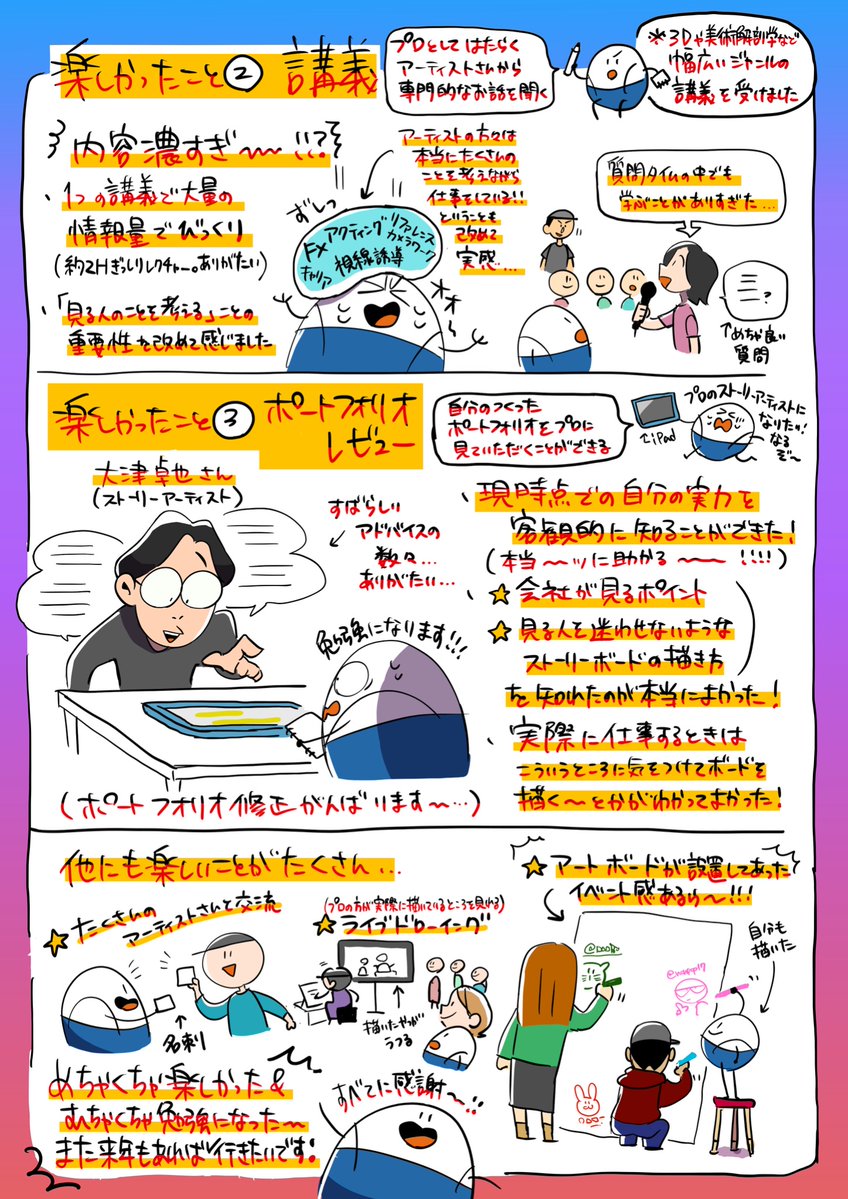 楽しかったこと② 講義
プロとしてはたらく
アーティストさんから
専門的なお話を聞く
※3Dや美術解剖学など
幅広いジャンルの
講義を受けました
内容濃すぎ〜〜!!?
、1つの講義で大量の
情報量でびっくり
(約2Hぎっしりレクチャー。ありがたい)
、「見る人のことを考える」ことの
重要性を改めて感じました
アーティストの方々は
本当にたくさんの
ことを考えながら
仕事をしている!!
ということも
改めて
実感…
ずしっ
FX アクティング リファレンス
カメラワーク
キャリア 視線誘導
オォ〜
質問タイムの中でも
学ぶことがありすぎた…
?
↑めちゃ良い
質問
楽しかったこと③ ポートフォリオ
レビュー
自分のつくった
ポートフォリオをプロに
見ていただくことができる
↑iPad
プロのストーリーアーティストに
なりたい!
なる
ぞ〜
大津卓也さん
(ストーリーアーティスト)
すばらしい
アドバイスの
数々…
ありがたい…
勉強になります!!!
、現時点での自分の実力を
客観的に知ることができた!
(本当〜ッに助かる〜〜!!!!)
★会社が見るポイント
★見る人を迷わせないような
ストーリーボードの描き方
を知れたのが本当によかった!
、実際に仕事するときは
こういうところに気をつけてボードを
描く〜とかがわかってよかった!
(ポートフォリオ修正がんばります〜…)
他にも楽しいことがたくさん…
★たくさんの
アーティストさんと交流
↑名刺
(プロの方が実際に描いているところを見れる)
★ライブドローイング
↑描いたやつが
うつる
★アートボードが設置してあった
イベント感あるゥ〜!!!
自分も
描いた
めちゃくちゃ楽しかった&
むちゃくちゃ勉強になった〜
また来年もあれば行きたいです!
すべてに感謝〜!!